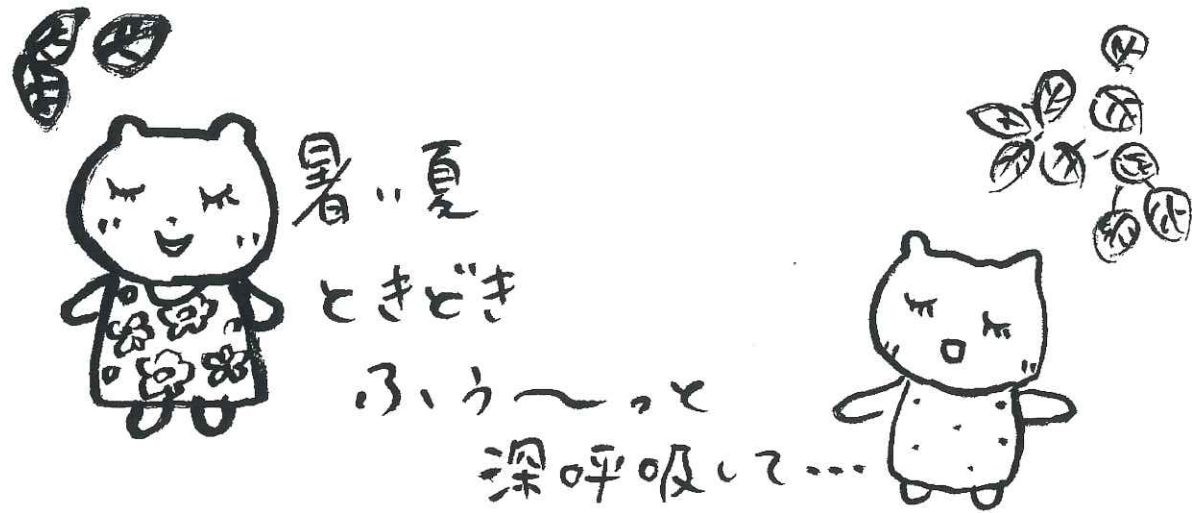 暑い夏
ときどき
ふぅ〜っと
深呼吸して…